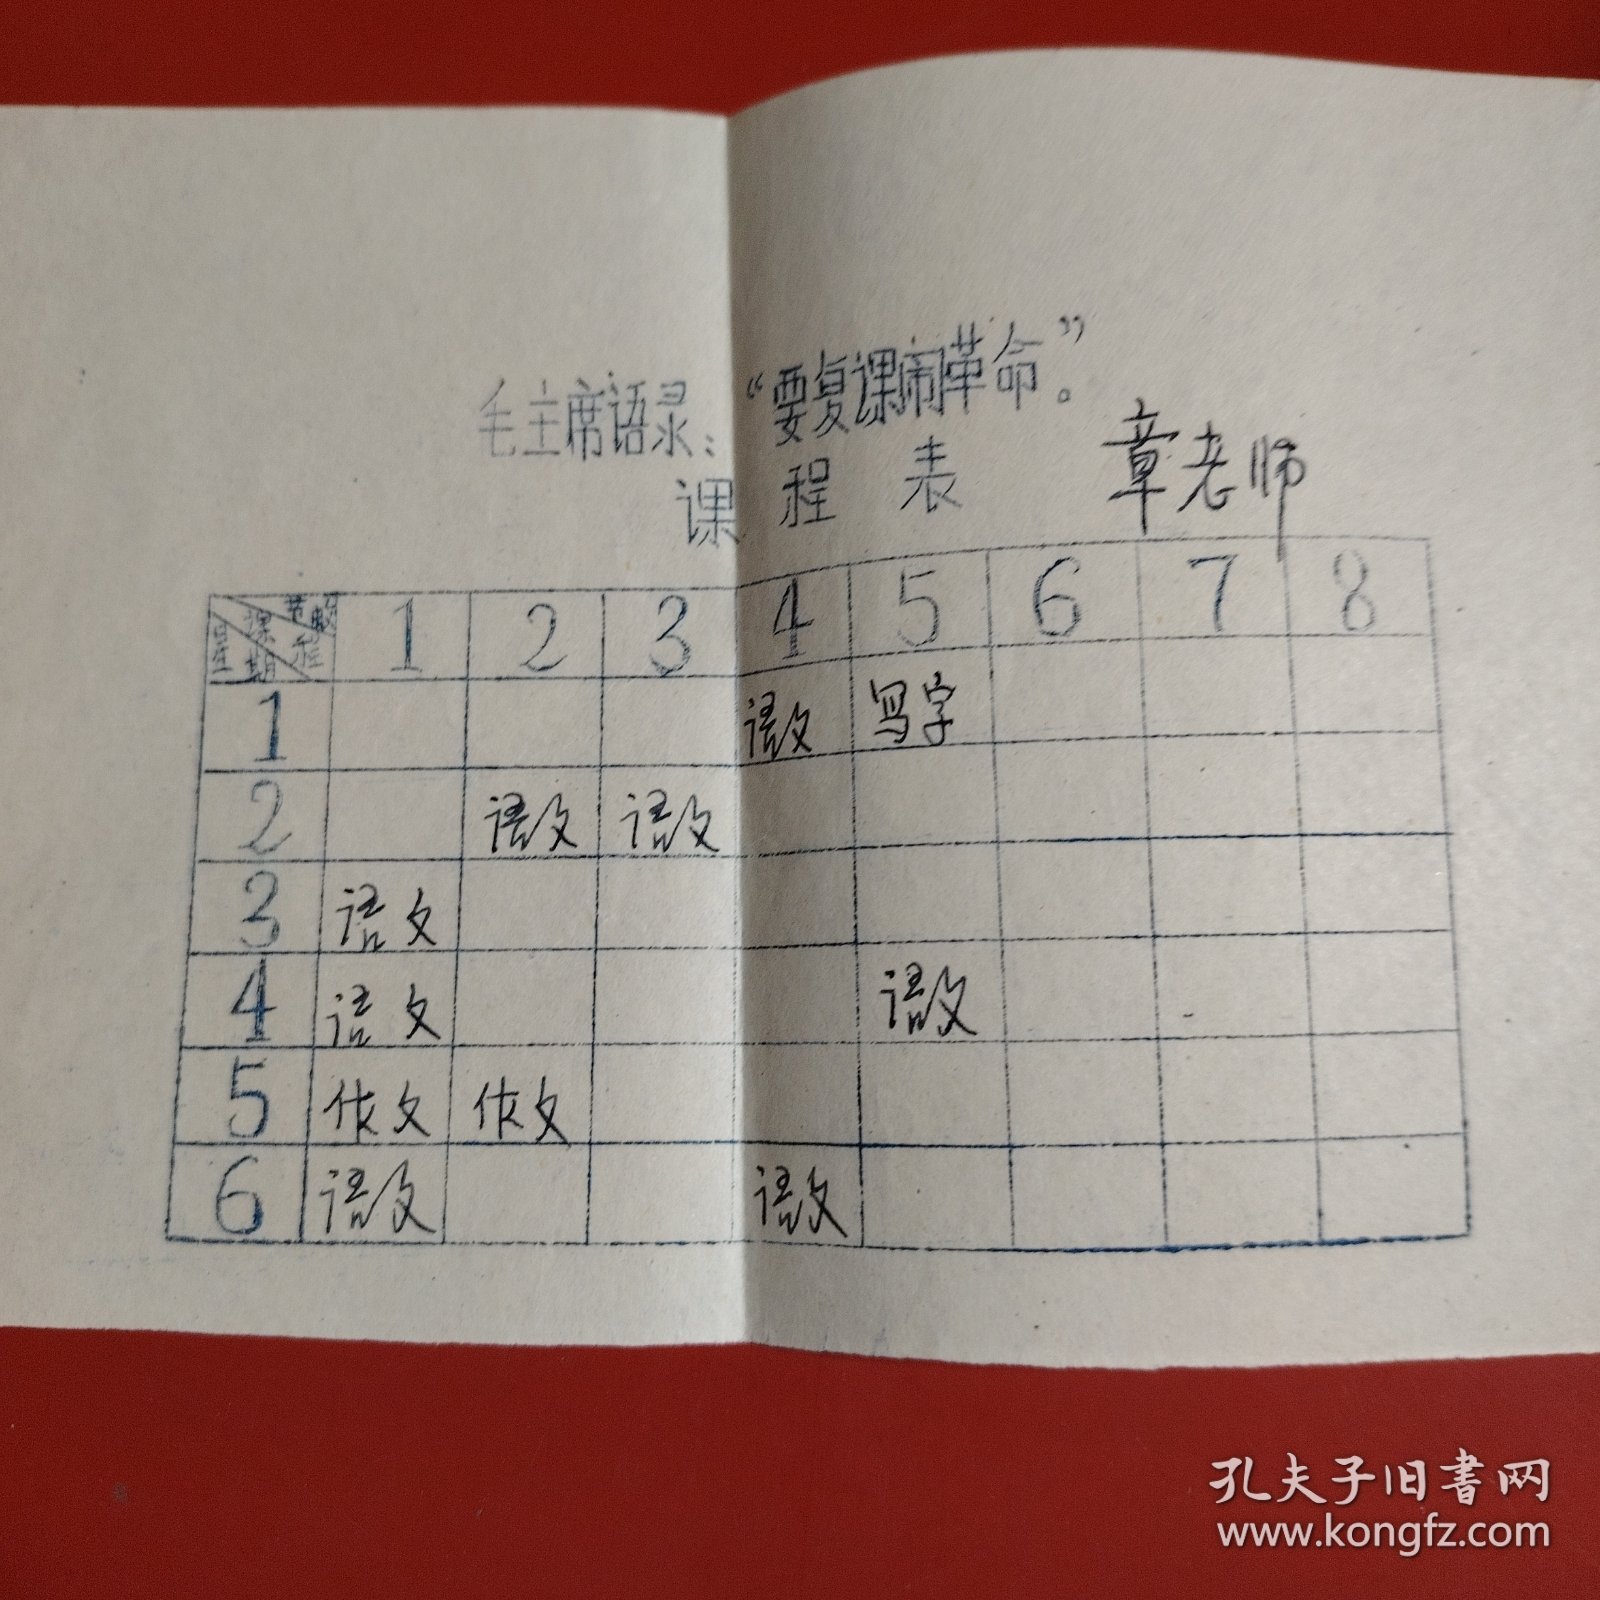 毛主席语录："要复课闹革命。"
课程表 章老师
节数 课程 星期 1 2 3 4 5 6 7 8
1 语文 写字
2 语文 语文
3 语文
4 语文 语文
5 作文 作文
6 语文 语文
孔夫子旧书网
www.kongfz.com